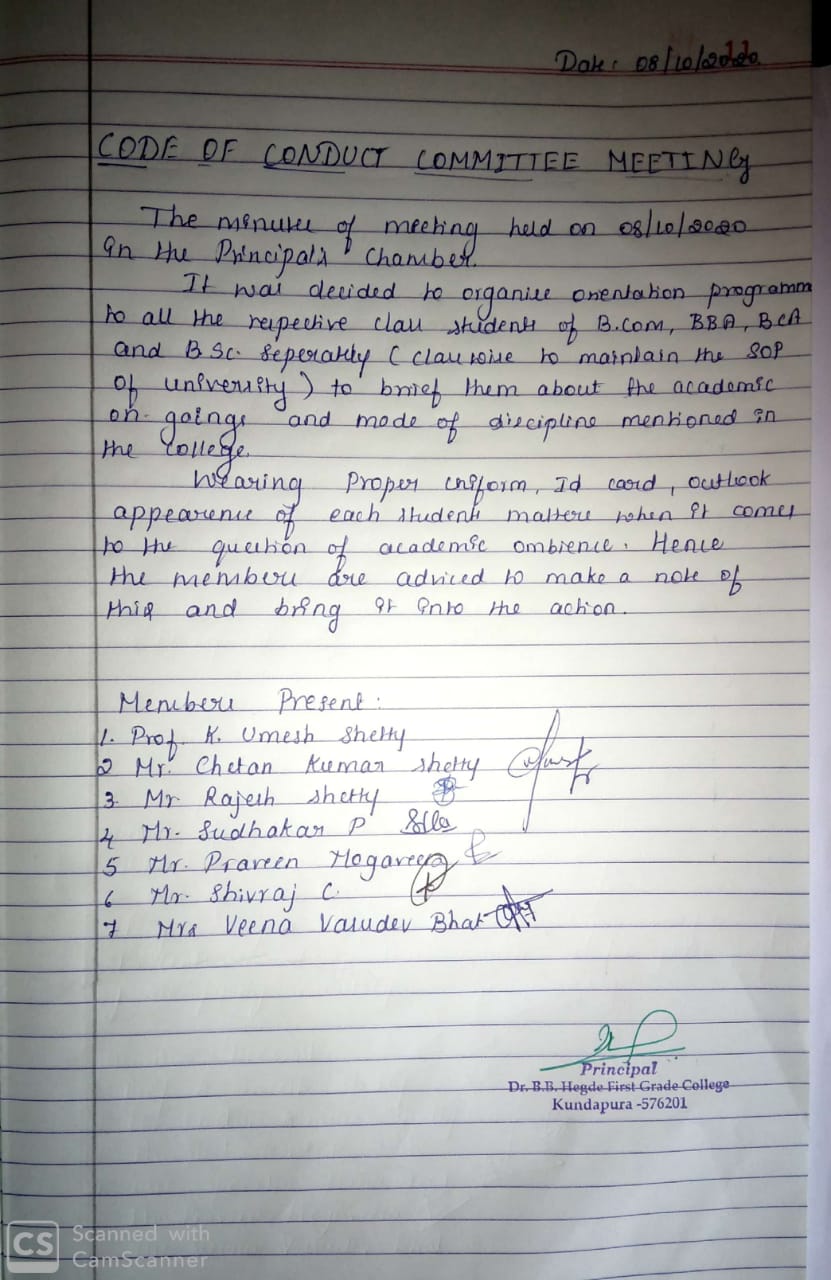 Date: 08/10/2020
CODE OF CONDUCT COMMITTEE MEETING
The minutes of meeting held on 08/10/2020
in the Principal's Chamber.
It was decided to organise orientation programm
to all the respective class students of B.Com, BBA, BCA
and B.Sc. Seperately (class wise to maintain the SOP
of university) to brief them about the academic
on-goings and mode of discipline mentioned in
the college.
Wearing Proper uniform, Id card, outlook
appearence of each students matters when it comes
to the question of academic ambience. Hence
the members are adviced to make a note of
this and bring it into the action.
Members Present:
1. Prof. K. Umesh Shetty
2 Mr. Chetan Kumar Shetty
3. Mr Rajesh Shetty
4 Mr. Sudhakar P
5 Mr. Praveen Mogaveera
6 Mr. Shivraj C.
7 Mrs Veena Vasudev Bhat
Principal
Dr. B.B. Hegde First Grade College
Kundapura -576201
CS Scanned with
CamScanner